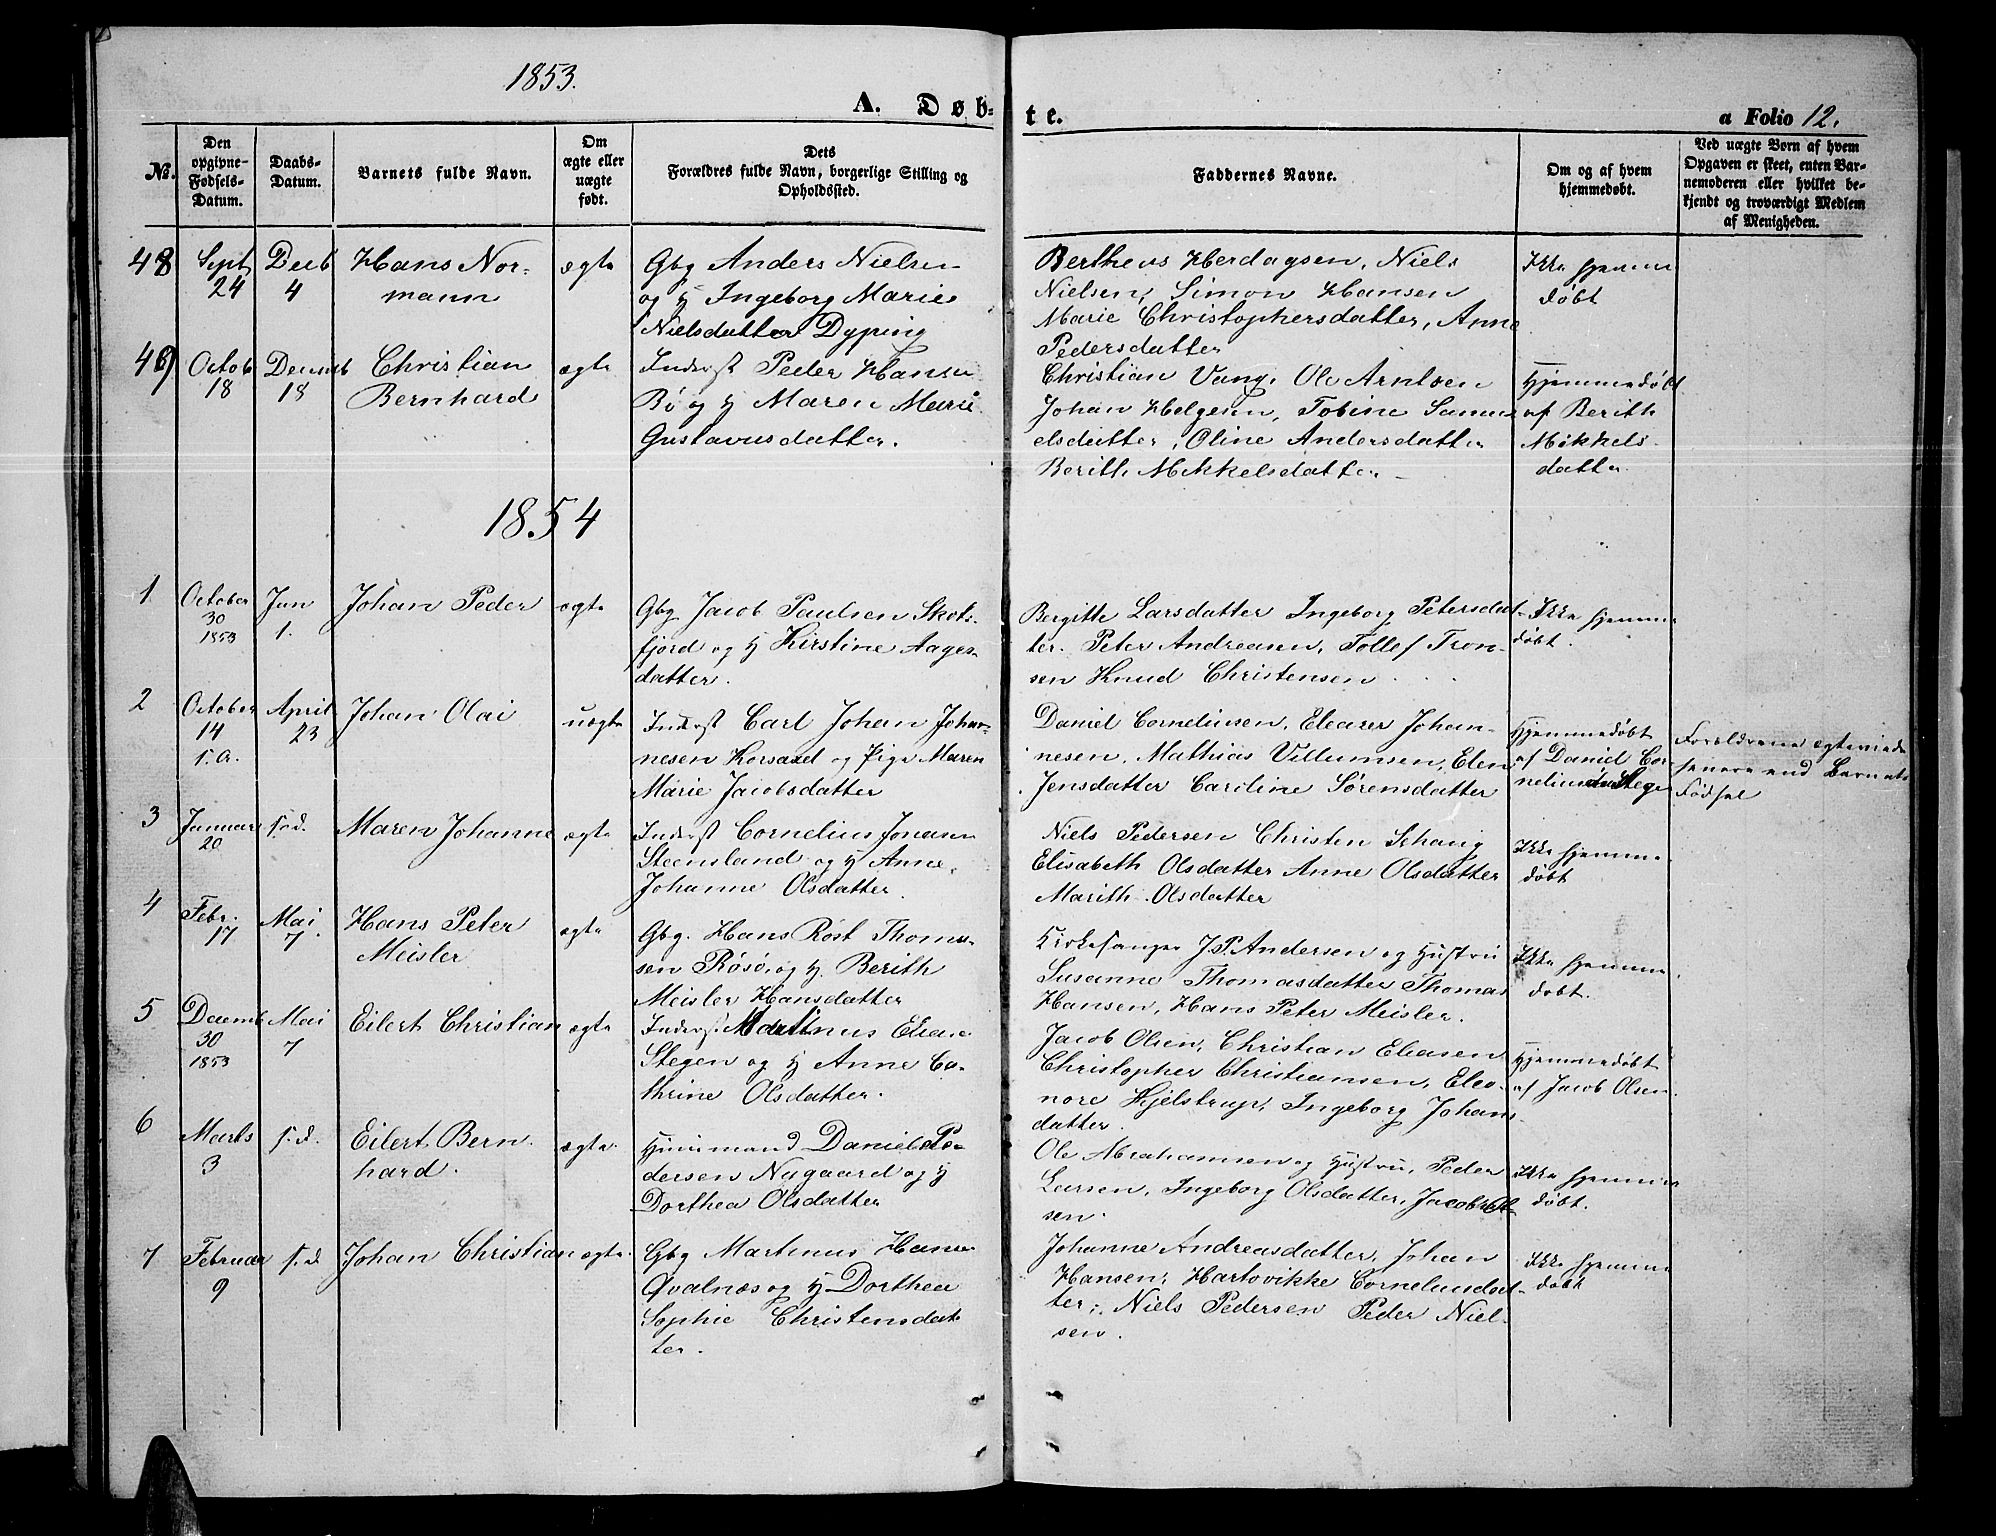 1853.
A. Døb-
te.
a Folio 12.
No.
Den
opgivne
Fødsels-
Datum.
Daabs-
Datum.
Barnets fulde Navn.
Om
ægte eller
uægte
født.
Dets
Forældres fulde Navn, borgerlige Stilling og
Opholdssted.
Faddernes Navne.
Om og af hvem
hjemmedøbt.
Ved uægte Børn af hvem
Opgaven er skeet, enten Bar-
nemoderen eller hvilket be-
kjendt og troværdigt Medlem
af Menigheden.
48
Sept
24
Decb
4
Hans Nor-
mann
ægte
Gbg Anders Nielsen
og H Ingeborg Marie
Nielsdatter Dyping
Bertheus Herdagsen, Niels
Nielsen, Simon Hansen
Marie Christophersdatter, Anne
Pedersdatter
Ikke hjemme
døbt
49
Octob
18
Decemb
18
Christian
Bernhard
ægte
Inderst Peder Hansen
Bø og H Maren Marie
Gustavusdatter.
Christian Vang, Ole Arntsen
Johan Helgesen, Tobine Samu
elsdatter, Oline Andersdatter
Berith Mikkelsdatter
Hjemmedøbt
af Berith
Mikkels-
datter
1854
1
October
30
1853
Jan
1.
Johan Peder
ægte
Gbg Jacob Paulsen Skots-
fjord og H Kirstine Aages-
datter.
Bergitte Larsdatter Ingeborg Petersdat-
ter. Peter Andreasen, Tollef Tron-
sen Knud Christensen
Ikke hjemme
døbt.
2
October
14
f.A.
April
23
Johan Olai
uægte
Inderst Carl Johan Johan-
nesen Korsaad og Pige Maren
Marie Jacobsdatter
Daniel Corneliusen, Eleazer Johan-
nesen, Mathias Villumsen, Elen
Jensdatter Caroline Sørensdatter
Hjemmedøbt
af Daniel Cor-
neliusen Stegen
Forældrene ægteviede
senere end Barnets
Fødsel
3
Januar
20
s.d.
Maren Johanne
ægte
Inderst Cornelius Jonasen
Steensland og H Anne
Johanne Olsdatter.
Niels Pedersen Christen Schang
Elisabeth Olsdatter Anne Olsdatter
Marith Olsdatter
Ikke hjemme-
døbt
4
Febr.
17
Mai
7.
Hans Peter
Meisler
ægte
Gbg. Hans Røst Thoma-
sen Røsø, og H. Berith
Meisler Hansdatter
Kirkesanger J.P. Andersen og Hustru
Susanne Thomasdatter Thomas
Hansen, Hans Peter Meisler.
Ikke hjemme
døbt.
5
Decemb
30
1853
Mai
7
Eilert Christian
ægte
Inderst Martinus Eliasen
Stegen og H Anne Ca-
thrine Olsdatter.
Jacob Olsen, Christian Eleasen
Christopher Christiansen, Eleo-
nore Hjelstrup, Ingeborg Johans
datter.
Hjemmedøbt
af Jacob Olsen.
6
Marts
3
s.d.
Eilert Bern
hard.
ægte
Huusmand Daniel Pe-
dersen Nygaard og H
Dorthea Olsdatter
Ole Abrahamsen og Hustru, Peder
Larsen, Ingeborg Olsdatter, Jacob Ol-
sen.
Ikke hjemme
døbt.
7
Februar
9
s.d
Johan Christian
ægte
Gbg Martinus Hansen
Qvalnæs og H Dorthea
Sophie Christensdat
ter.
Johanne Andreasdatter, Johan
Hansen, Hartvikke Corneliusdat-
ter, Niels Pedersen Peder Niel-
sen.
Ikke hjemme
døbt